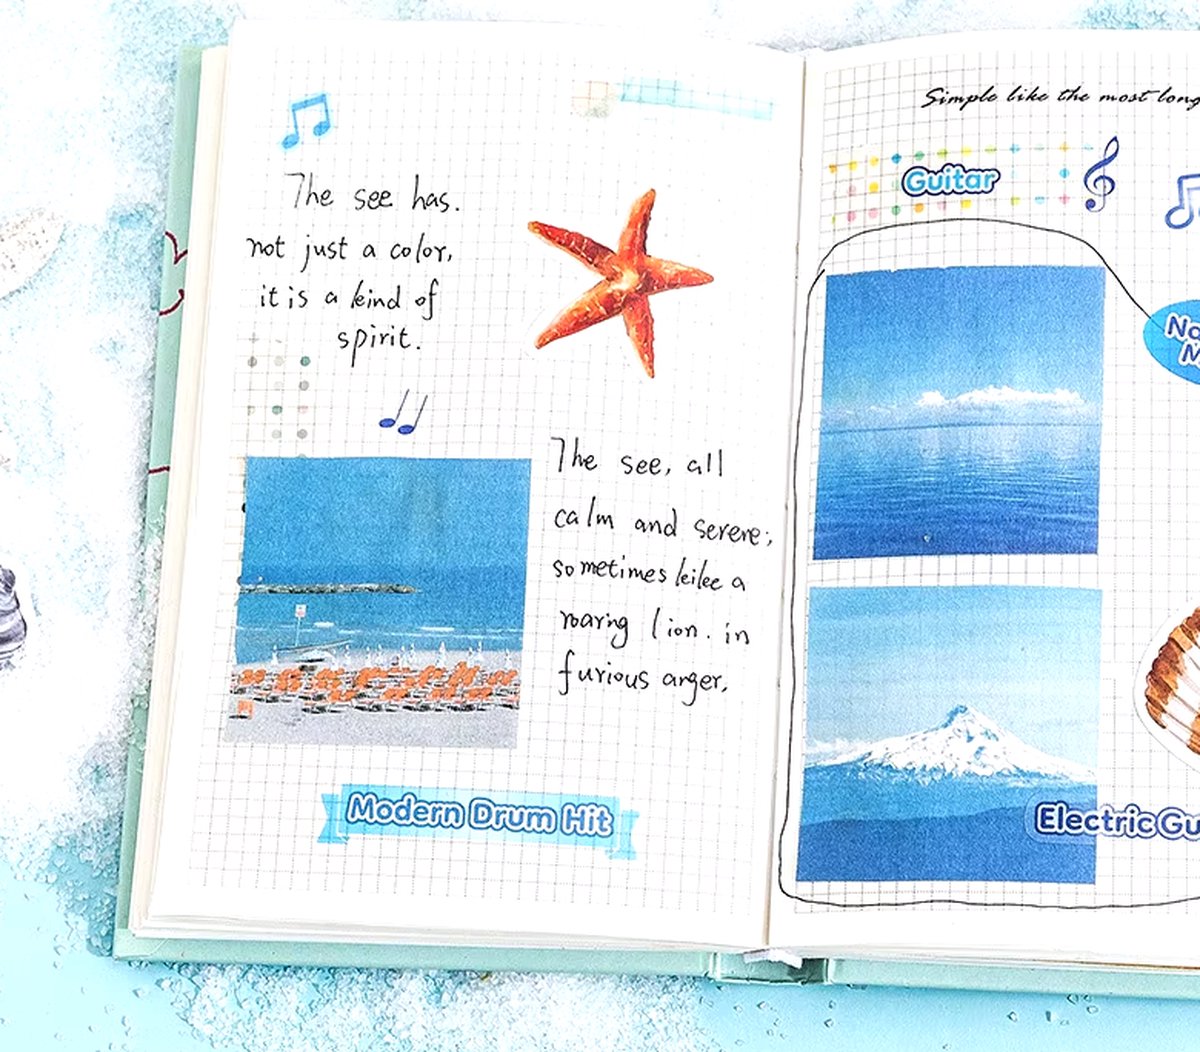 The see has.
not just a color,
it is a kind of
spirit.
The see, all
calm and serene;
sometimes leilee a
roaring lion. in
furious anger,
Modern Drum Hit
Simple like the most long
Guitar
Na
M
Electric Gu